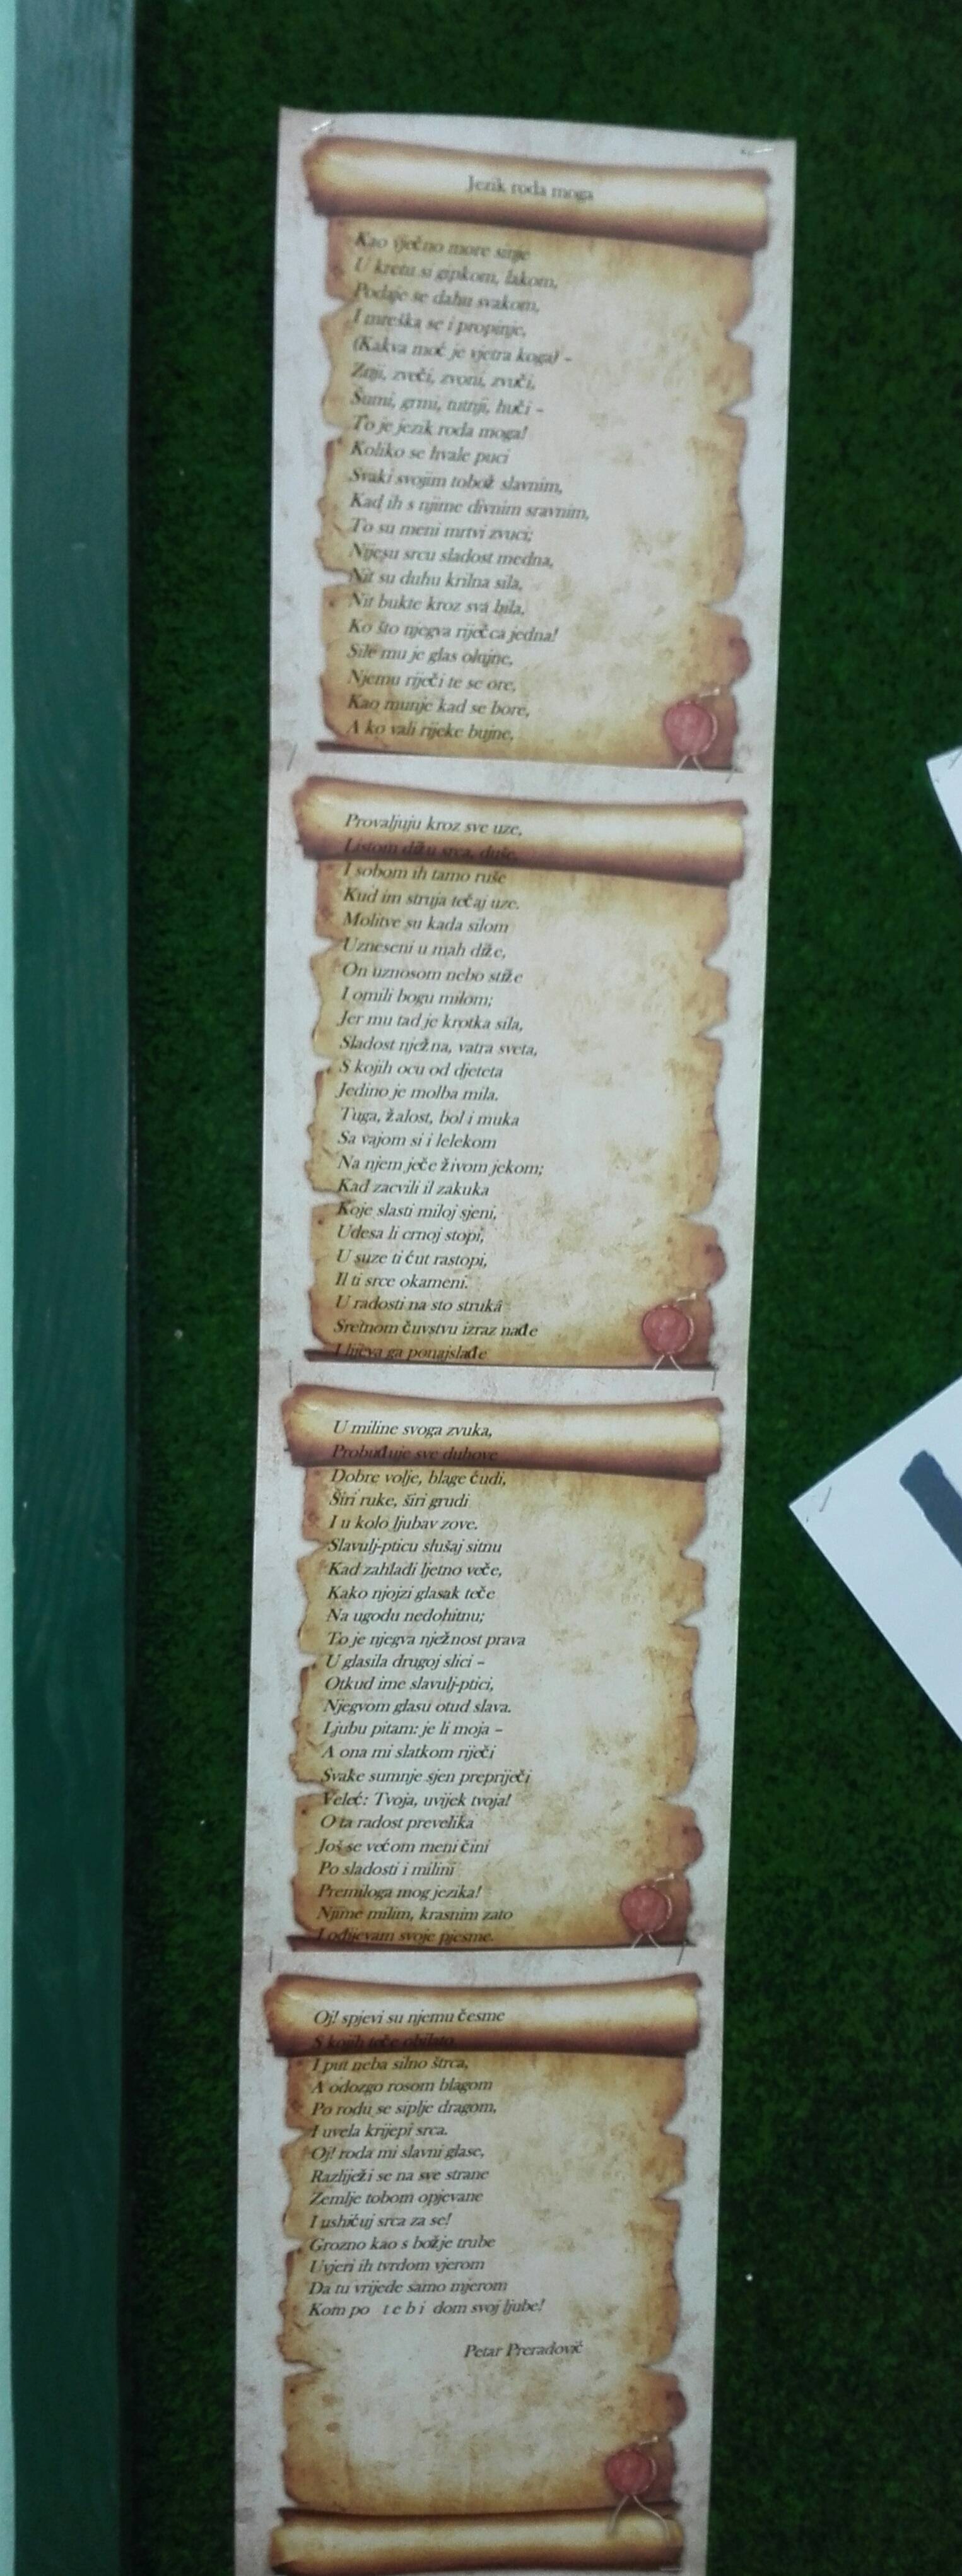 Jezik roda moga
Kao vječno more sinje
U kretu si gipkom, lakom,
Podaje se dahu svakom,
I mreška se i propinje,
(Kakva moć je vjetra koga) –
Zuji, zveči, zvoni, zvuči,
Šumi, grmi, tutnji, huči –
To je jezik roda moga!
Koliko se hvale puci
Svaki svojim tobož slavnim,
Kad ih s njime divnim sravnim,
To su meni mrtvi zvuci;
Nijesu srcu sladost medna,
Nit su duhu krilna sila,
Nit bukte kroz svá bila,
Ko što njegva riječca jedna!
Sile mu je glas olujne,
Njemu riječi te se ore,
Kao munje kad se bore,
A ko vali rijeke bujne,
Provaljuju kroz sve uze,
Listom dižu srca, duše,
I sobom ih tamo ruše
Kud im struja tečaj uze.
Molitve su kada silom
Uzneseni u mah diže,
On uznosom nebo stiže
I omili bogu milom;
Jer mu tad je krotka sila,
Sladost nježna, vatra sveta,
S kojih ocu od djeteta
Jedino je molba mila.
Tuga, žalost, bol i muka
Sa vajom si i lelekom
Na njem ječe živom jekom;
Kad zacvili il zakuka
Koje slasti miloj sjeni,
Udesa li crnoj stopi,
U suze ti ćut rastopi,
Il ti srce okameni.
U radosti na sto strukâ
Sretnom čuvstvu izraz nađe
I lijeva ga ponajslađe
U miline svoga zvuka,
Probuđuje sve duhove
Dobre volje, blage ćudi,
Širi ruke, širi grudi
I u kolo ljubav zove.
Slavulj-pticu slušaj sitnu
Kad zahladi ljetno veče,
Kako njojzi glasak teče
Na ugodu nedohitnu;
To je njegva nježnost prava
U glasila drugoj slici –
Otkud ime slavulj-ptici,
Njegvom glasu otud slava.
Ljubu pitam: je li moja –
A ona mi slatkom riječi
Svake sumnje sjen prepriječi
Veleć: Tvoja, uvijek tvoja!
O ta radost prevelika
Još se većom meni čini
Po sladosti i milini
Premiloga mog jezika!
Njime milim, krasnim zato
I odijevam svoje pjesme.
Oj! spjevi su njemu česme
S kojih teče obilato
I put neba silno štrca,
A odozgo rosom blagom
Po rodu se siplje dragom,
I uvela krijepi srca.
Oj! roda mi slavni glase,
Razliježi se na sve strane
Zemlje tobom opjevane
I ushićuj srca za se!
Grozno kao s božje trube
Uvjeri ih tvrdom vjerom
Da tu vrijede samo mjerom
Kom po t e b i dom svoj ljube!
Petar Preradović